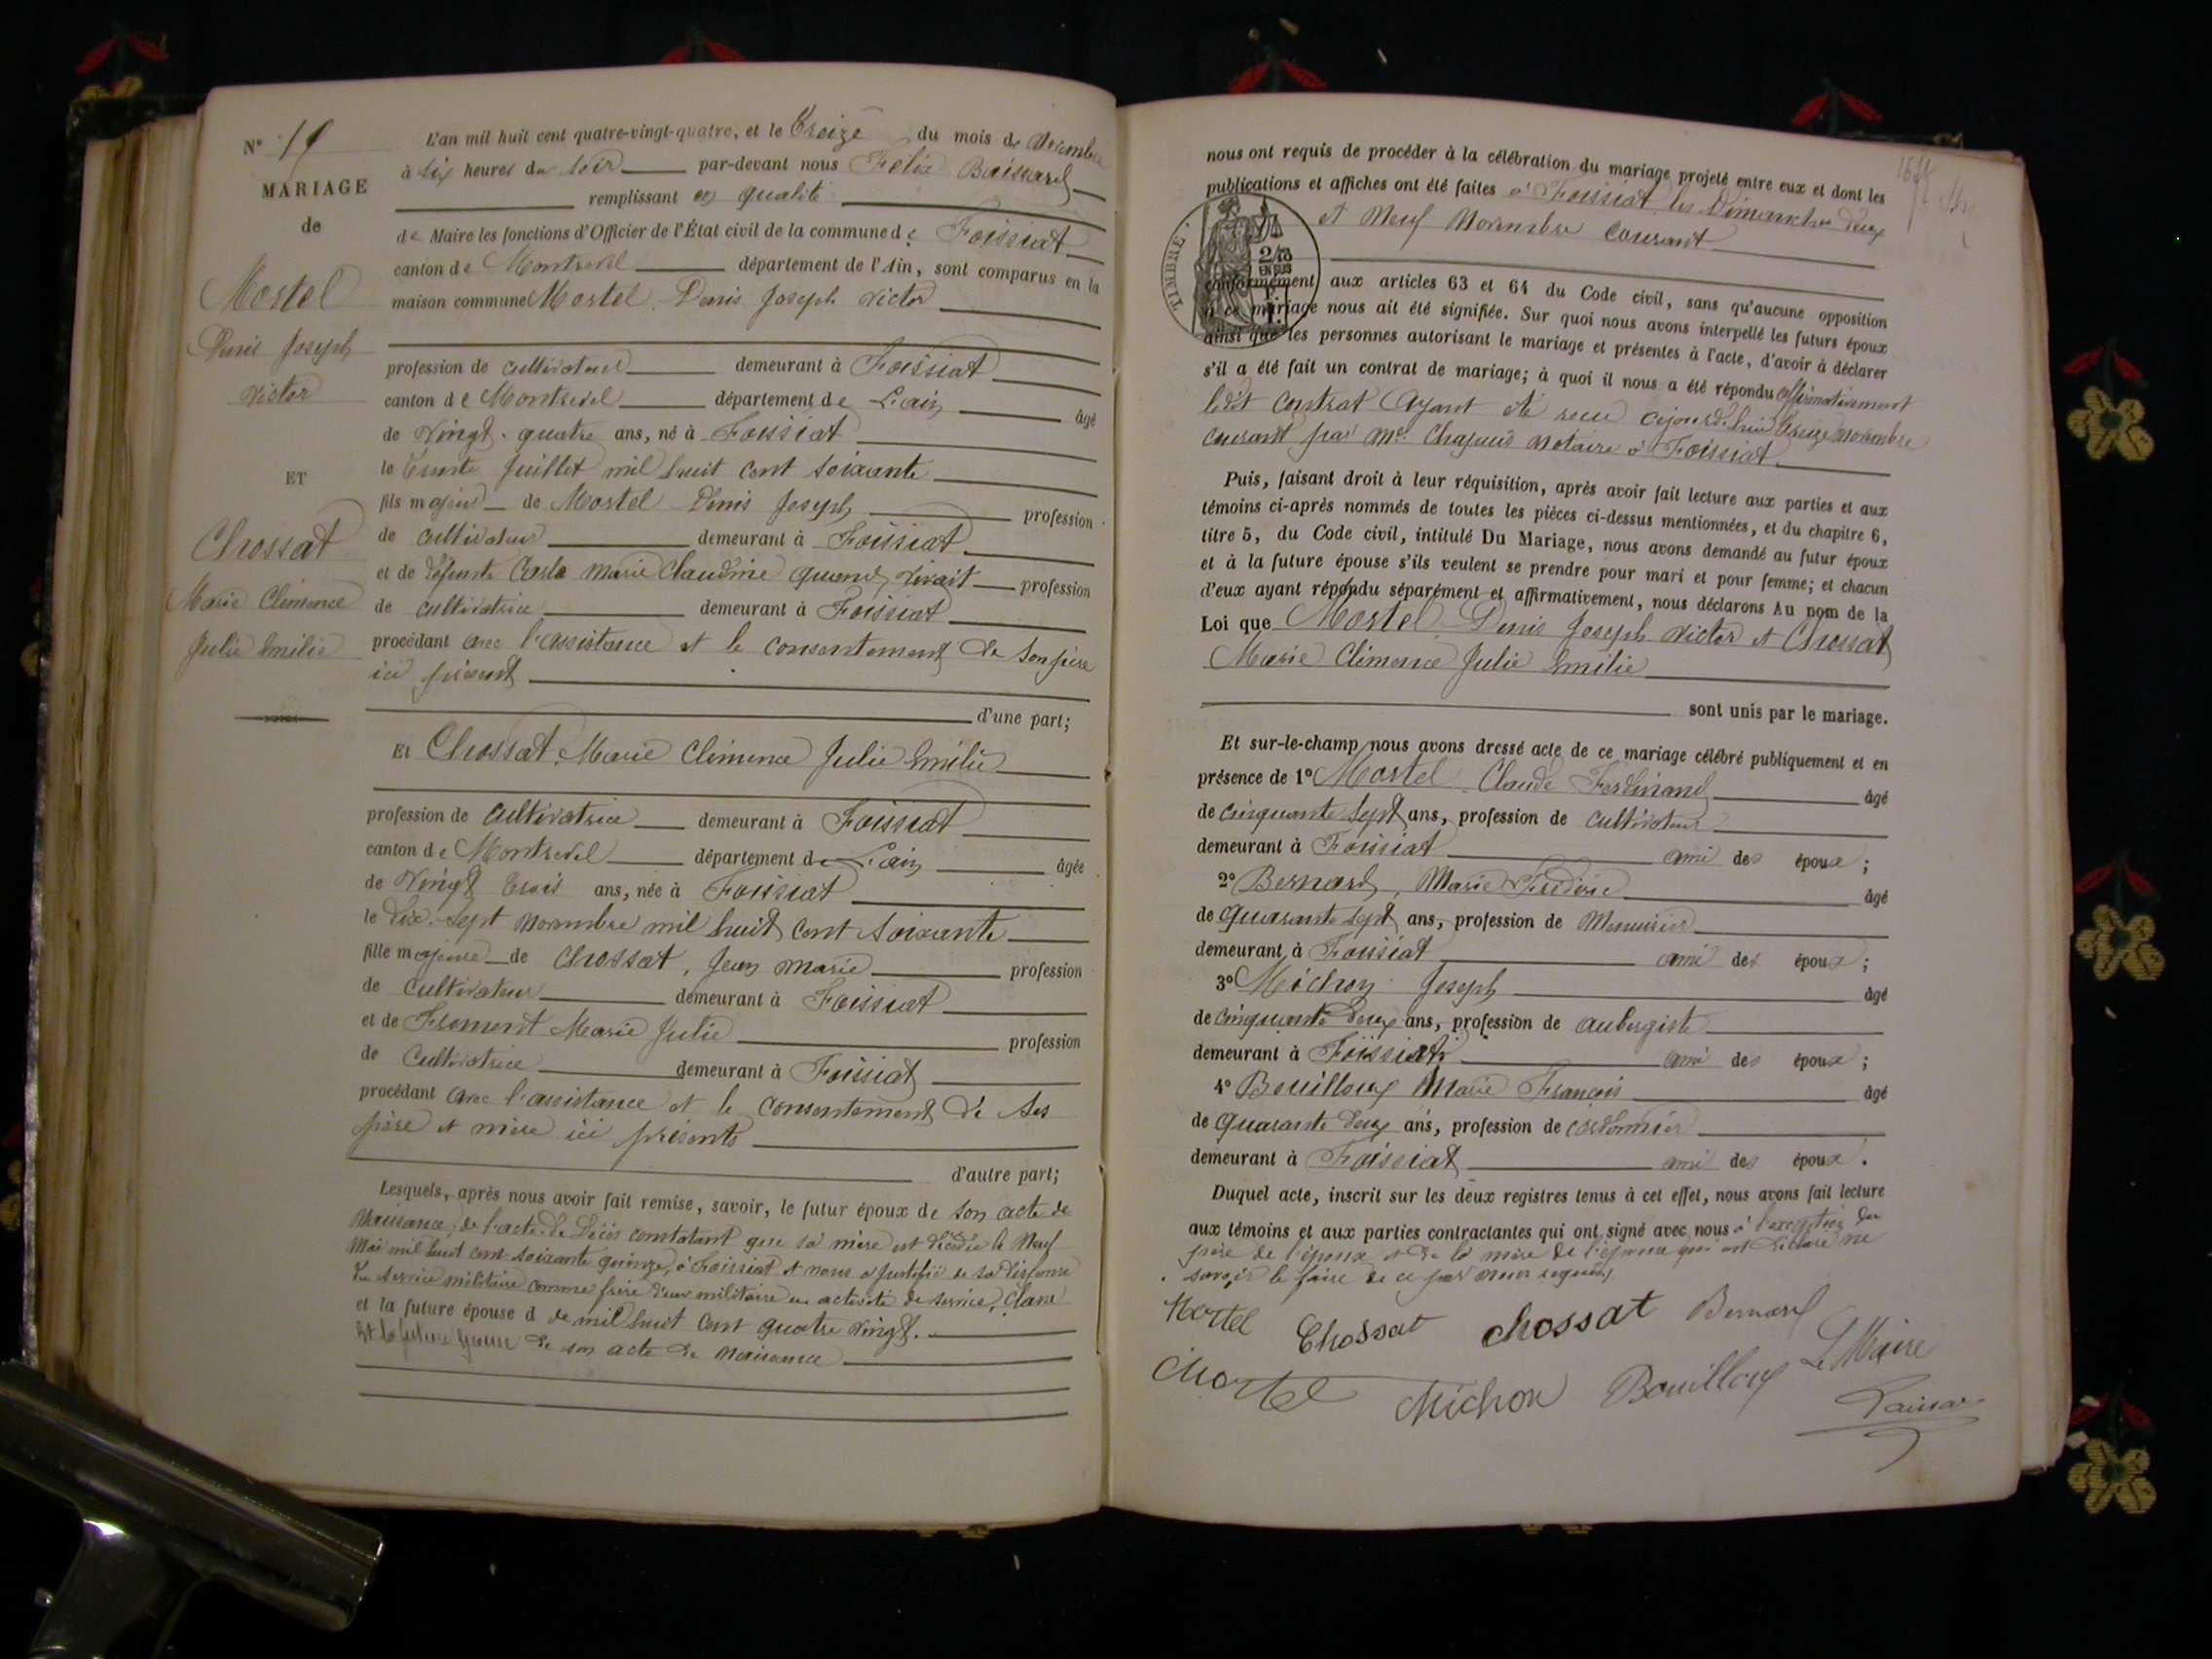 N° 19
MARIAGE
de
Mortel
Denis Joseph
Victor
ET
Chossat
Marie Clémence
Julie Emilie
L'an mil huit cent quatre-vingt-quatre, et le Treize du mois de Novembre
à six heures du soir par-devant nous Félix
remplissant en qualité
de Maire les fonctions d'Officier de l'État civil de la commune de Foissiat
canton de Montrevel département de l'Ain, sont comparus en la
maison commune Mortel Denis Joseph Victor
profession de cultivateur demeurant à Foissiat
canton de Montrevel département de L'ain âgé
de Vingt-quatre ans, né à Foissiat
le Trente Juillet mil huit cent soixante
fils majeur de Mortel Denis Joseph profession
de cultivateur demeurant à Foissiat
et de défunte Marie Claudine quand vivait profession
de cultivatrice demeurant à Foissiat
procédant avec l'assistance et le consentement de son père
ici présent
d'une part;
Et Chossat, Marie Clémence Julie Emilie
profession de cultivatrice demeurant à Foissiat
canton de Montrevel département de L'ain âgée
de Vingt trois ans, née à Foissiat
le Dix-Sept Novembre mil huit cent soixante
fille majeure de Chossat, Jean Marie profession
de cultivateur demeurant à Foissiat
et de Froment Marie Julie profession
de cultivatrice demeurant à Foissiat
procédant avec l'assistance et le consentement de ses
père et mère ici présents
d'autre part;
Lesquels, après nous avoir fait remise, savoir, le futur époux de son acte de
Naissance, de l'acte de Décès constatant que sa mère est décédée le Neuf
Mai mil huit cent soixante quinze, à Foissiat et nous a justifié de sa dispense
du service militaire comme frère d'un militaire en activité de service, classe
et la future épouse d de mil huit cent quatre vingt.
Et la future épouse de son acte de Naissance
nous ont requis de procéder à la célébration du mariage projeté entre eux et dont les
publications et affiches ont été faites à Foissiat les Dimanches deux
et Neuf Novembre courant
TIMBRE
conformément aux articles 63 et 64 du Code civil, sans qu'aucune opposition
à ce mariage nous ait été signifiée. Sur quoi nous avons interpellé les futurs époux
ainsi que les personnes autorisant le mariage et présentes à l'acte, d'avoir à déclarer
s'il a été fait un contrat de mariage; à quoi il nous a été répondu affirmativement
ledit contrat ayant été reçu cejourd'hui treize novembre
courant par Me Chapuis Notaire à Foissiat.
Puis, faisant droit à leur réquisition, après avoir fait lecture aux parties et aux
témoins ci-après nommés de toutes les pièces ci-dessus mentionnées, et du chapitre 6,
titre 5, du Code civil, intitulé Du Mariage, nous avons demandé au futur époux
et à la future épouse s'ils veulent se prendre pour mari et pour femme; et chacun
d'eux ayant répondu séparément et affirmativement, nous déclarons Au nom de la
Loi que Mortel Denis Joseph Victor et Chossat
Marie Clémence Julie Emilie
sont unis par le mariage.
Et sur-le-champ nous avons dressé acte de ce mariage célébré publiquement et en
présence de 1° Mortel Claude Ferdinand âgé
de cinquante sept ans, profession de cultivateur
demeurant à Foissiat ami des époux;
2° Bernard, Marie Frédéric âgé
de Quarante sept ans, profession de Menuisier
demeurant à Foissiat ami des époux;
3° Michon Joseph âgé
de cinquante deux ans, profession de aubergiste
demeurant à Foissiat ami des époux;
4° Bouilloux Marie François âgé
de Quarante deux ans, profession de cordonnier
demeurant à Foissiat ami des époux.
Duquel acte, inscrit sur les deux registres tenus à cet effet, nous avons fait lecture
aux témoins et aux parties contractantes qui ont signé avec nous à l'exception du
père de l'époux et de la mère de l'épouse qui ont déclaré ne
savoir le faire de ce par nous requis
Mortel Chossat Chossat Bernard
Mortel Michon Bouilloux Le Maire